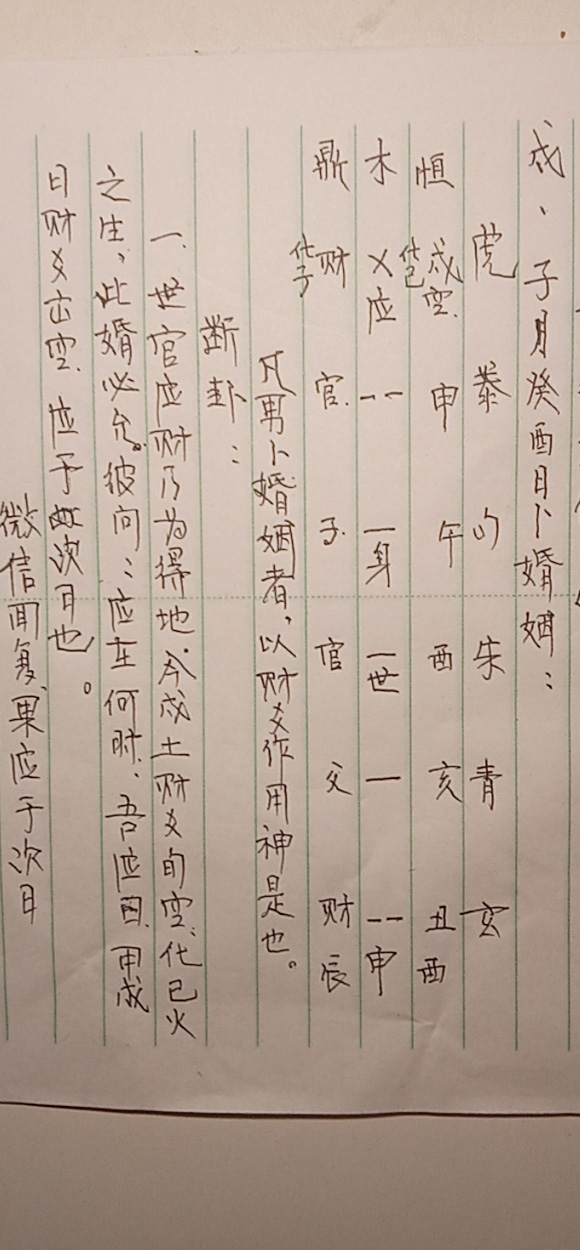 戌、子月癸酉日卜婚姻：
虎 蛇 勾 朱 青 玄
恒 戌空化巳 申 午 酉 亥 丑酉
木 乂应 -- 一身 一世 一 --申
鼎 财化子 官 子 官 父 财辰
凡男卜婚姻者，以财爻作用神是也。
断卦：
一、世官应财乃为得地，今戌土财爻旬空，化巳火
之生，此婚必允。彼问：应在何时，吾应曰：甲戌
日财爻出空，应于次日也。
微信回复，果应于次日